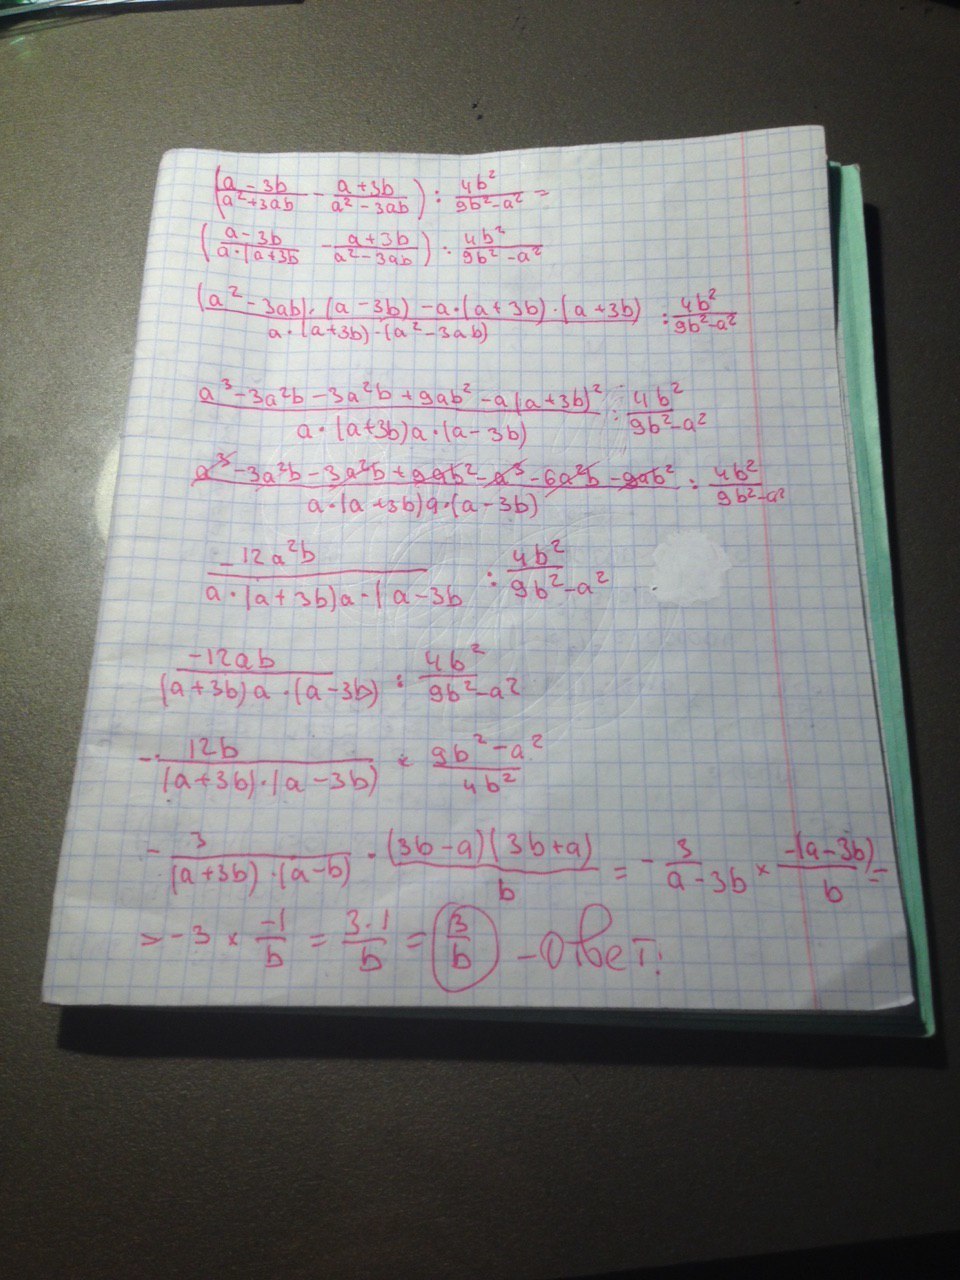 (a-3b/a²+3ab - a+3b/a²-3ab) : 4b²/9b²-a² =
(a-3b/a·(a+3b - a+3b/a²-3ab) : 4b²/9b²-a²
(a²-3ab)·(a-3b)-a·(a+3b)·(a+3b)/a·(a+3b)·(a²-3ab) : 4b²/9b²-a²
a³-3a²b-3a²b+9ab²-a(a+3b)²/a·(a+3b)a·(a-3b) : 4b²/9b²-a²
a³-3a²b-3a²b+9ab²-a³-6a²b-9ab²/a·(a+3b)a·(a-3b) : 4b²/9b²-a²
-12a²b/a·(a+3b)a·(a-3b : 4b²/9b²-a²
-12ab/(a+3b)a·(a-3b) : 4b²/9b²-a²
- 12b/(a+3b)·(a-3b) × 9b²-a²/4b²
- 3/(a+3b)·(a-b) · (3b-a)(3b+a)/b = - 3/a-3b × -(a-3b)/b =
> -3 × -1/b = 3·1/b = 3/b - ответ!